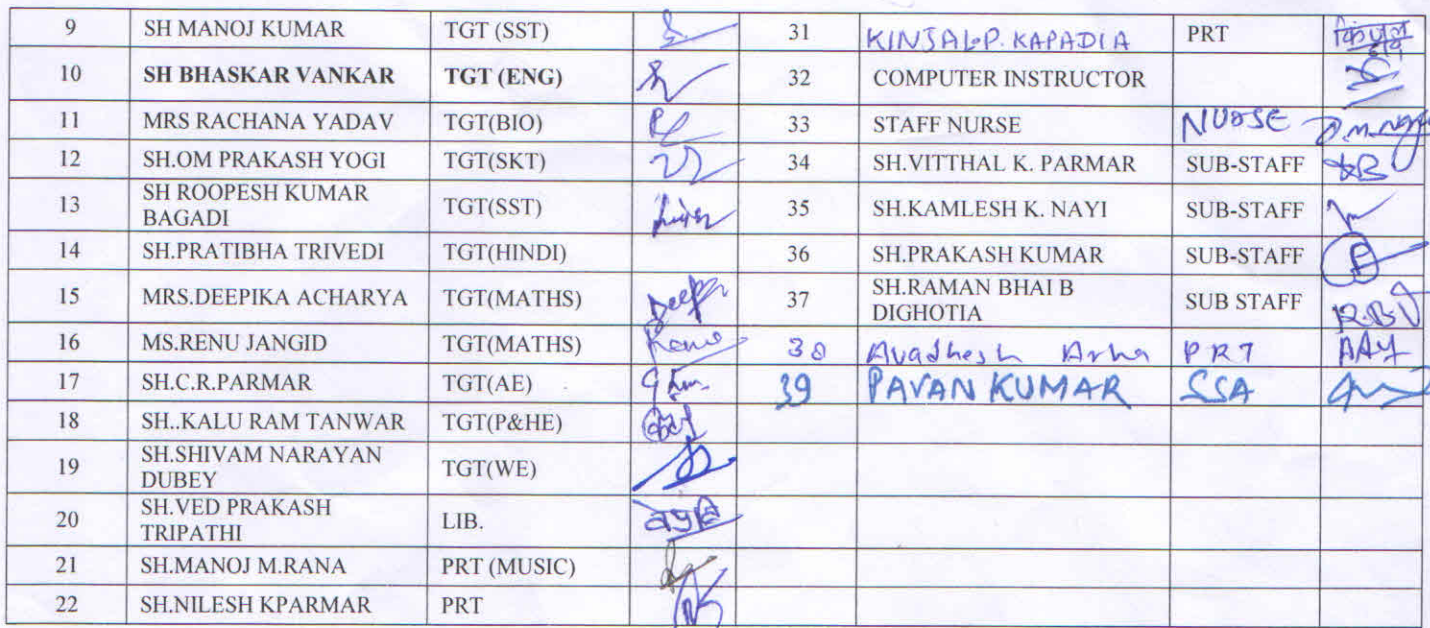 9 SH MANOJ KUMAR TGT (SST) 31 KINJAL.P. KAPADIA PRT
10 SH BHASKAR VANKAR TGT (ENG) 32 COMPUTER INSTRUCTOR
11 MRS RACHANA YADAV TGT(BIO) 33 STAFF NURSE NURSE
12 SH.OM PRAKASH YOGI TGT(SKT) 34 SH.VITTHAL K. PARMAR SUB-STAFF
13 SH ROOPESH KUMAR BAGADI TGT(SST) 35 SH.KAMLESH K. NAYI SUB-STAFF
14 SH.PRATIBHA TRIVEDI TGT(HINDI) 36 SH.PRAKASH KUMAR SUB-STAFF
15 MRS.DEEPIKA ACHARYA TGT(MATHS) Deepa 37 SH.RAMAN BHAI B DIGHOTIA SUB STAFF R.B.D
16 MS.RENU JANGID TGT(MATHS) Renu 38 Avadhesh PRT
17 SH.C.R.PARMAR TGT(AE) 39 PAVAN KUMAR SSA
18 SH..KALU RAM TANWAR TGT(P&HE)
19 SH.SHIVAM NARAYAN DUBEY TGT(WE)
20 SH.VED PRAKASH TRIPATHI LIB.
21 SH.MANOJ M.RANA PRT (MUSIC)
22 SH.NILESH KPARMAR PRT